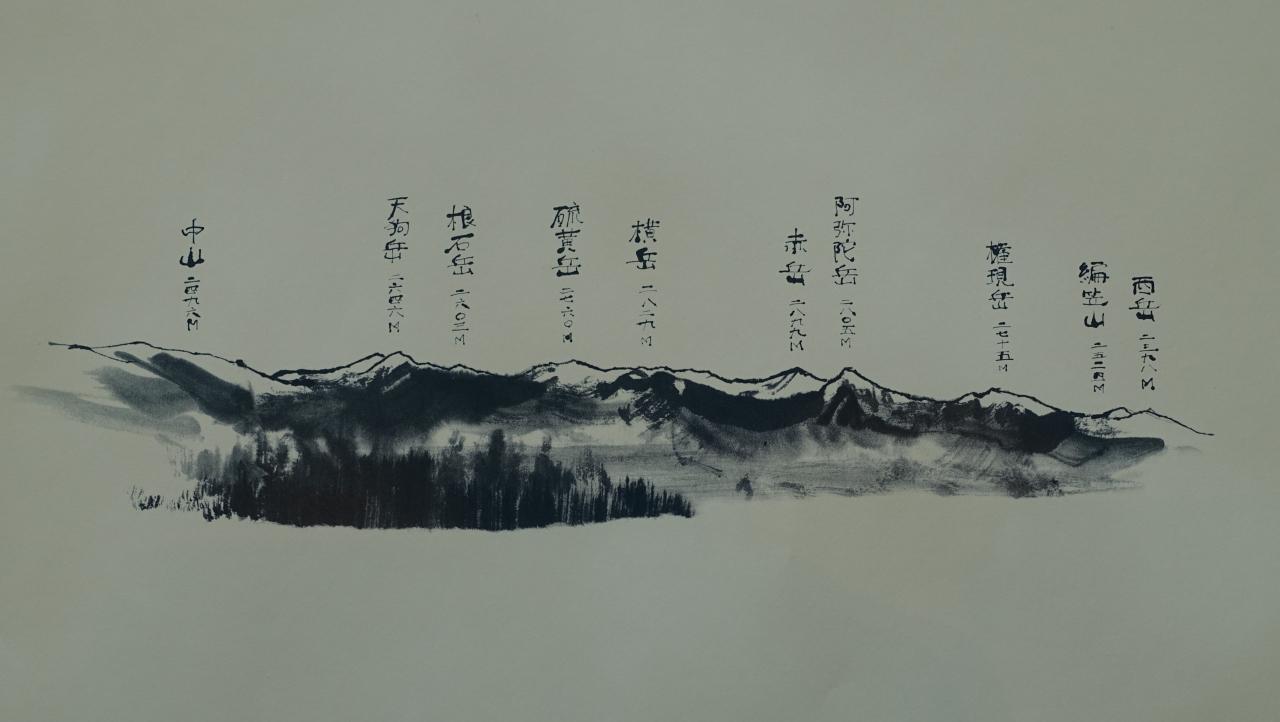 中山 二四九六M
天狗岳 二六四六M
根石岳 二六〇三M
硫黄岳 二七六〇M
横岳 二八二九M
赤岳 二八九九M
阿弥陀岳 二八〇五M
権現岳 二七十五M
編笠山 二五二四M
西岳 二三九八M